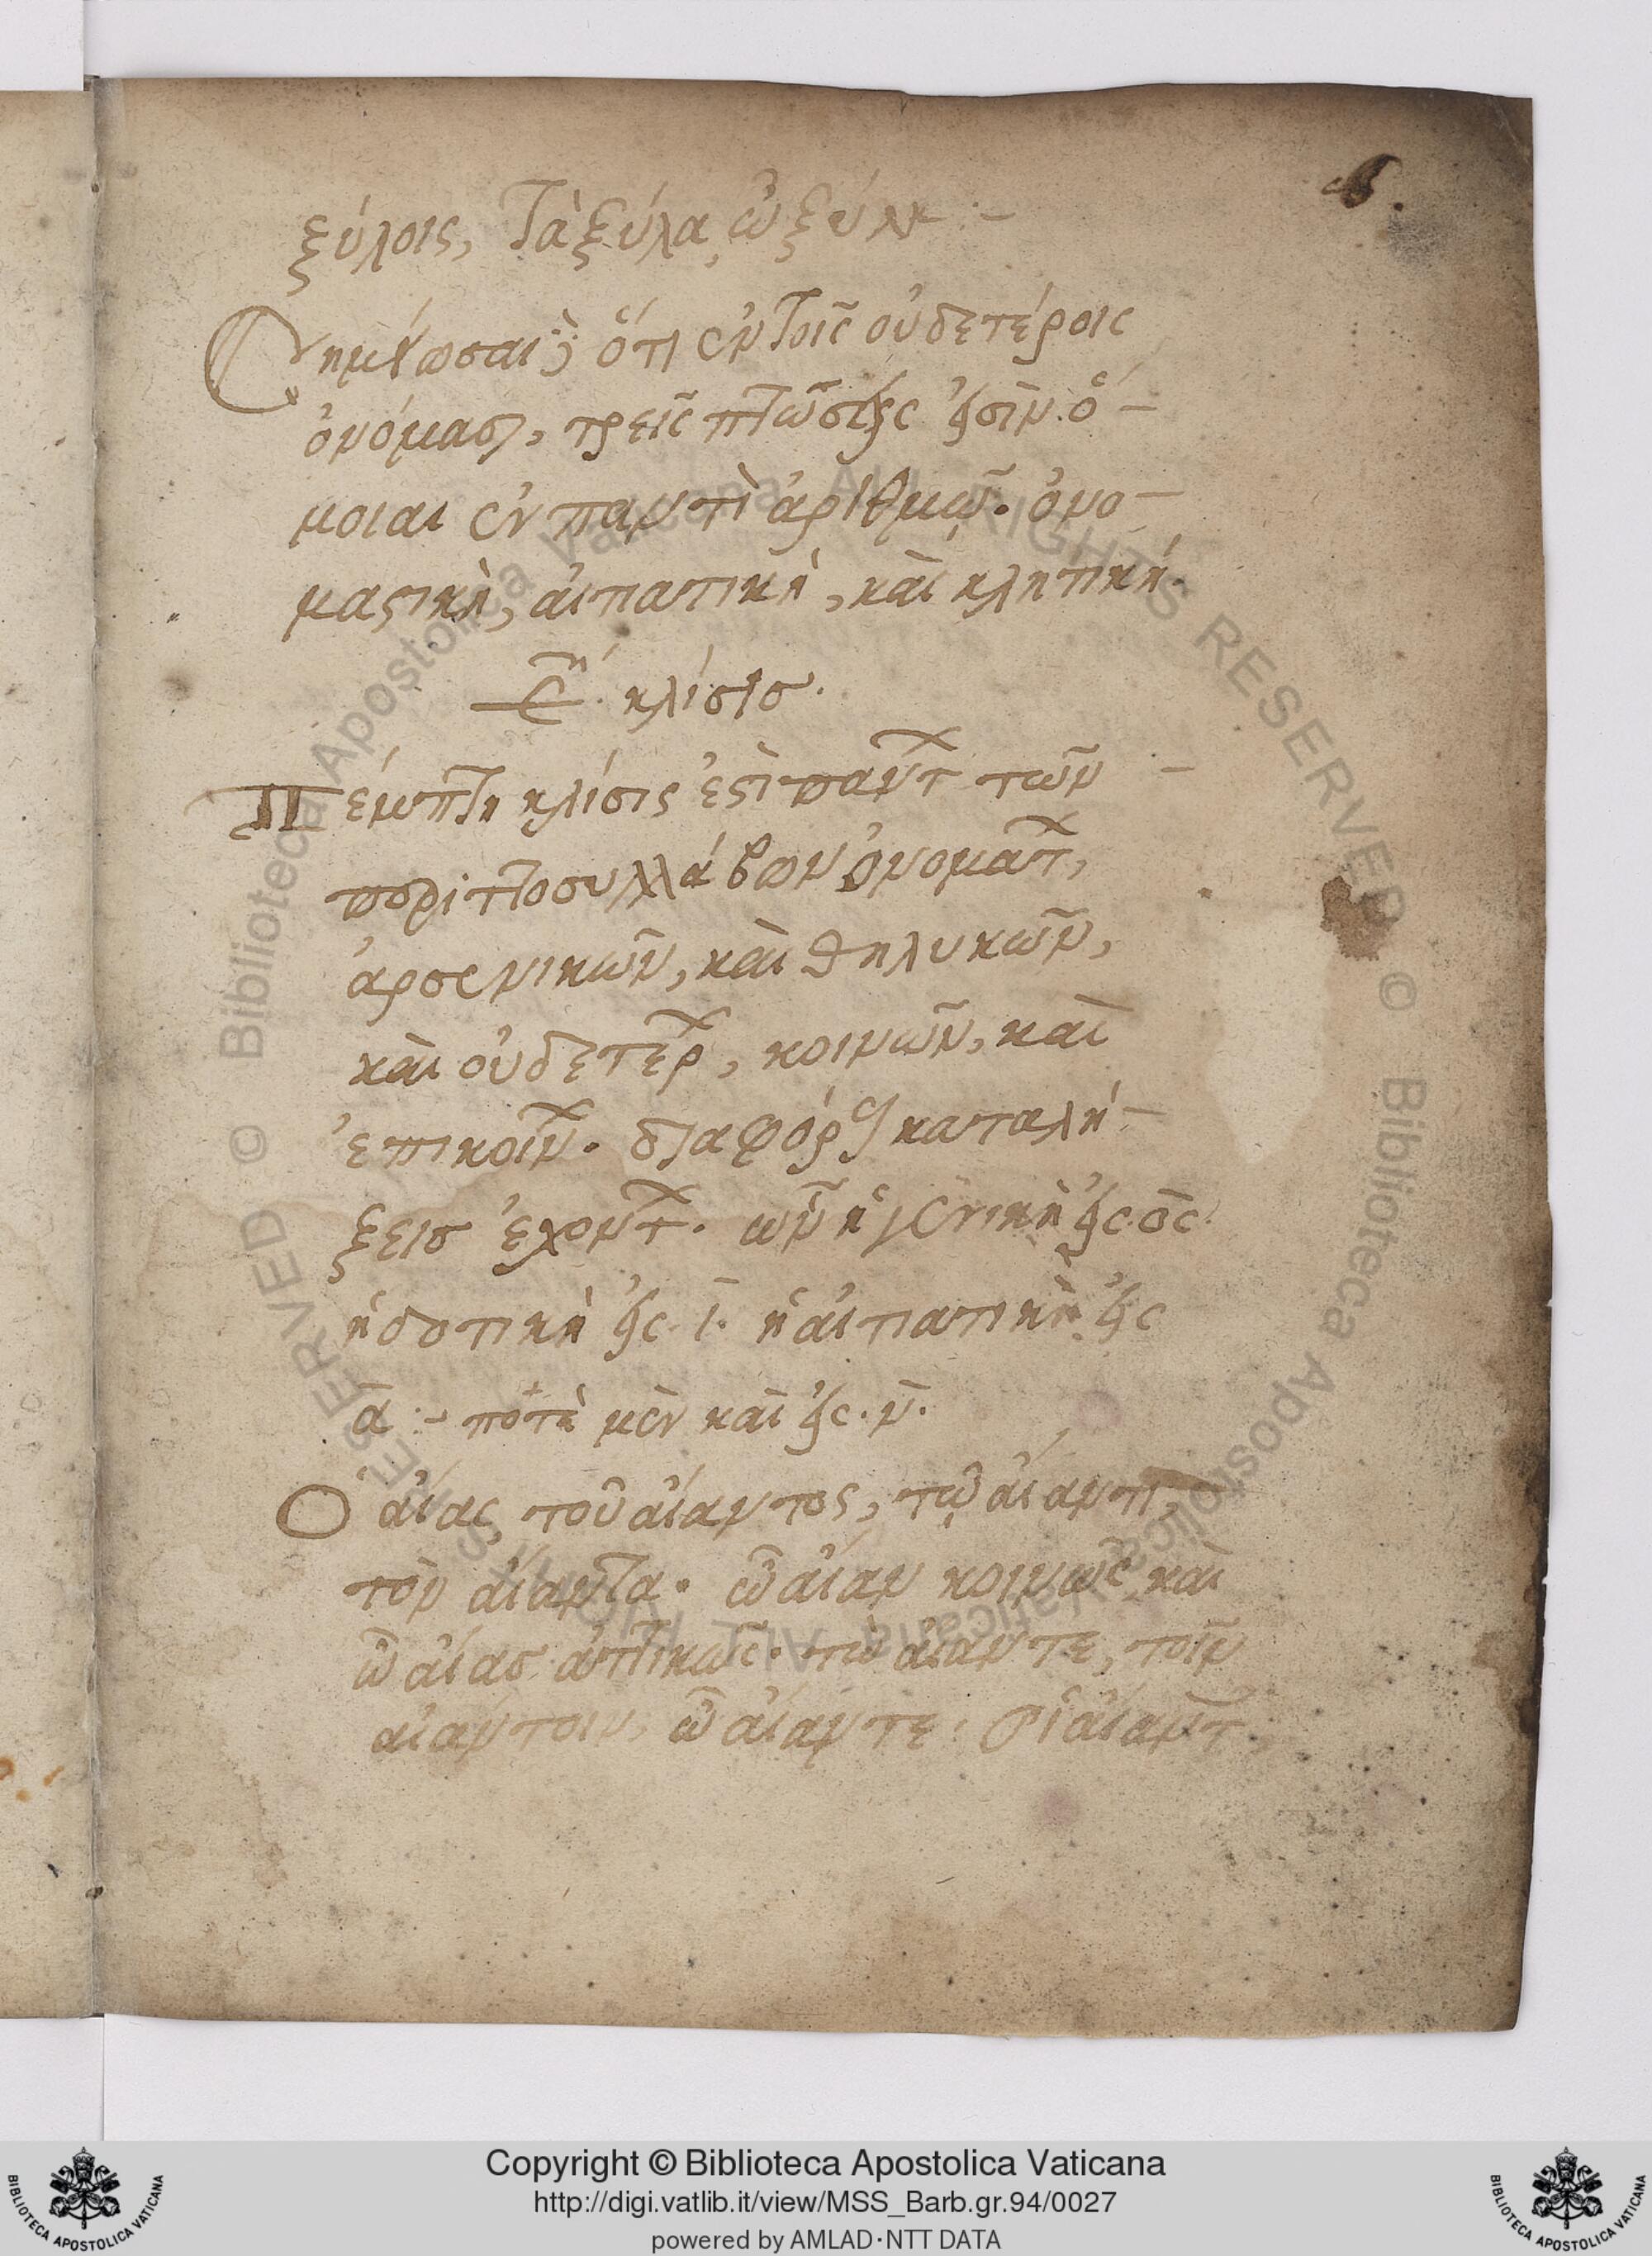 ξύλοις, τὰ ξύλα, ὦ ξύλα :-
Σημείωσαι ὅτι ἐν τοῖς οὐδετέροις
ὀνόμασι, τρεῖς πτώσεις εἰσὶν ὅ-
μοιαι ἐν παντὶ ἀριθμῷ. ὀνο-
μαστικὴ, αἰτιατικὴ, καὶ κλητική.
Ε΄. κλίσις.
Πέμπτη κλίσις ἐστὶ πάντων τῶν
περιττοσυλλάβων ὀνομάτων,
ἀρσενικῶν, καὶ θηλυκῶν,
καὶ οὐδετέρων, κοινῶν, καὶ
ἐπικοίνων. διαφόρους καταλή-
ξεις ἐχόντων. ὧν ἡ γενικὴ εἰς ος.
ἡ δοτικὴ εἰς ι. ἡ αἰτιατικὴ εἰς
α :- ποτὲ μὲν καὶ εἰς ν.
Ὁ αἴας, τοῦ αἴαντος, τῷ αἴαντι,
τὸν αἴαντα. ὦ αἶαν κοινῶς, καὶ
ὦ αἴας ἀττικῶς. τὼ αἴαντε, τοῖν
αἰάντοιν, ὦ αἴαντε. οἱ αἴαντες
Copyright © Biblioteca Apostolica Vaticana
http://digi.vatlib.it/view/MSS_Barb.gr.94/0027
powered by AMLAD·NTT DATA
BIBLIOTECA APOSTOLICA VATICANA
BIBLIOTECA APOSTOLICA VATICANA
© Biblioteca Apostolica Vaticana ALL RIGHTS RESERVED © Biblioteca Apostolica Vaticana ALL RIGHTS RESERVED